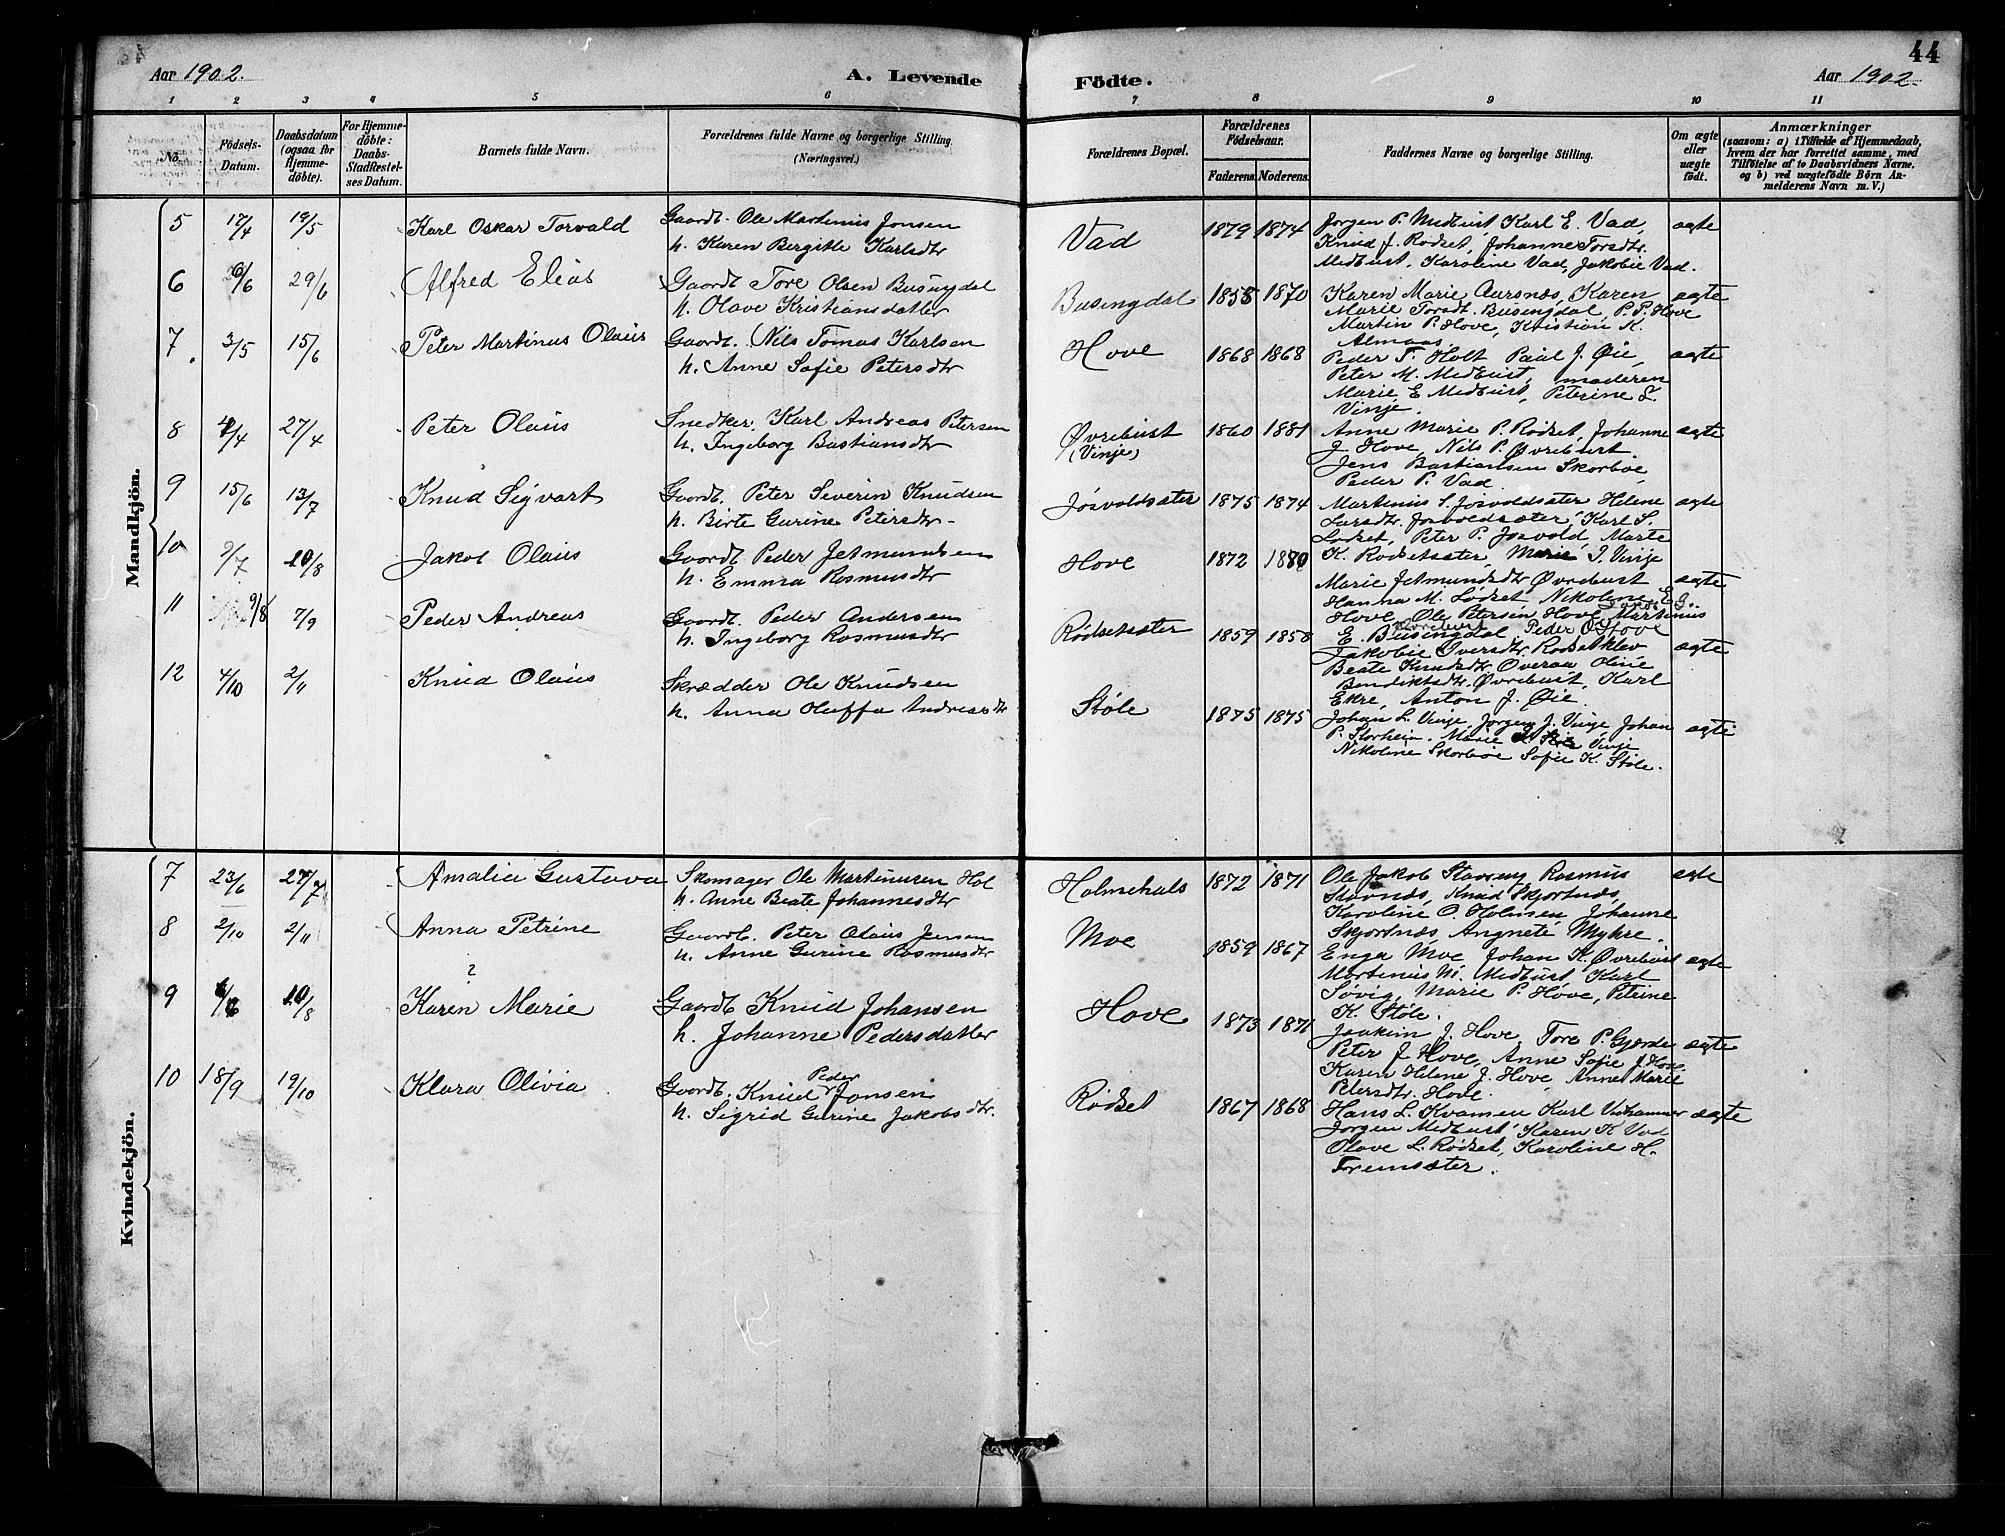 44
Aar 1902.
A. Levende Födte.
Aar 1902.
1 2 3 4 5 6 7 8 9 10 11
No.
Födsels-Datum.
Daabsdatum (ogsaa for Hjemme-döbte).
For Hjemme-döbte: Daabs-Stadfæstelses Datum.
Barnets fulde Navn.
Forældrenes fulde Navne og borgerlige Stilling.
(Næringsvei.)
Forældrenes Bopæl.
Forældrenes Födselsaar.
Faderens. Moderens.
Faddernes Navne og borgerlige Stilling.
Om ægte eller uægte födt.
Anmærkninger
(saasom: a) i Tilfælde af Hjemmedaab, hvem der har forrettet samme, med Tilföielse af to Daabsvidners Navne. og b) ved uægtefödte Börn Anmelderens Navn m. V.)
Mandkjön.
5 17/4 19/5 Karl Oskar Torvald
Gaardb. Ole Martinus Jonsen
h. Karen Bergitte Karlsdtr
Vad 1879 1874
Jørgen P. Medbust, Karl E. Vad,
Knud J. Rødset, Johanne Torsdtr.
Medbust, Karoline Vad, Jakobie Vad.
ægte
6 29/6 Alfred Elias
Gaardb Tore Olsen Busingdal
h. Olave Kristiansdatter
Busingdal 1858 1870
Karen Marie Aursnes, Karen
Marie Torsdt. Busingdal, P. P. Hove
Martin P. Hove, Kristian K.
Almaas.
ægte
7 3/5 15/6 Peter Martinus Olaus
Gaardb. Nils Tomas Karlsen
h. Anne Sofie Petersdtr
Hove 1868 1868
Peder T. Holt Paul J. Øie,
Peter M. Medbust, moderen
Marie E Medbust, Peterine L.
Vinje.
ægte
8 27/4 Peter Olaus
Snedker. Karl Andreas Petersen
h. Ingeborg Bastiansdtr
Øvrebust (Vinje) 1860 1881
Anne Marie P. Rødset, Johanne
J. Hove, Nils P. Øvrebust.
Jens Bastiansen Skorbøe,
Peder P. Vad.
ægte
9 15/6 13/7 Knud Sigvart
Gaardb. Peter Severin Knudsen
h. Birte Gurine Petersdtr.
Jøsvoldsæter 1875 1874
Martinus S. Jøsvoldsæter Helene
Larsdtr. Jøsvoldsæter, Karl S.
Lødset, Peter P. Jøsvold, Marte
K. Rødsetsæter, Marie J. Vinje
ægte
10 9/7 10/8 Jakob Olaus
Gaardb Peder Jetmundsen
h. Emma Rasmusdtr
Hove 1872 1880
Marie Jetmundsdtr Øvrebust
Hanna M. Lødset, Nikoline E.
Hove, Ole Petersen Hove Martinus
E. Busingdal Peder Hove
ægte
11 9/8 7/9 Peder Andreas
Gaardb. Peder Andersen
h. Ingeborg Rasmusdtr
Rødsetsæter 1859 1858
Jakobie Iversdtr. Rødsetklev
Beate Knudsdtr. Overaa Oline
Bendiktsdtr. Øvrebust, Karl
Ekre, Anton J. Øie.
ægte
12 4/10 2/11 Knud Olaus
Skrædder Ole Knudsen
h. Anna Oluffa Andreasdtr
Støle 1875 1875
Johan L. Vinje, Jørgen J. Vinje, Johan
P. Storheim. Marie Vinje
Nikoline Skorbøe Sofie K. Støle.
ægte
Kvindekjön.
7 23/6 27/7 Amalia Gustava
Skomager Ole Martinusen Hol
h. Anne Beate Johannesdtr
Holmehals 1872 1871
Ole Jakob Staveng Rasmus
Stavnæs, Knud Skjortnæs,
Karoline O. Holmsen, Johanne
Skjortnæs, Angnete Myhre.
ægte
8 2/10 2/11 Anna Petrine
Gaardb. Peter Olaus Jensen
h. Anne Gurine Rasmusdtr
Moe 1859 1867
Enga Moe, Johan K. Øvrebust
Martinus M. Medbust, Karl
Søvig, Marie P. Hove, Petrine
K. Støle.
ægte
?
9 10/8 Karen Marie
Gaardb Knud Johansen
h. Johanne Pedersdatter
Hove 1873 1871
Joakim J. Hove, Tore P. Gjerde
Peter J. Hove, Anne Sofie J. Hove
Karen Helene J. Hove, Anne Marie
Petersdtr. Hove.
ægte
10 18/9 19/10 Klara Olivia
Gaardb. Knud Peder Jonsen
h. Sigrid Gurine Jakobsdtr.
Rødset 1867 1868
Hans L. Kvamen Karl Vadhammer
Jørgen Medbust, Karen K. Vad
Olave L. Rødset, Karoline H.
Toremsæter.
ægte